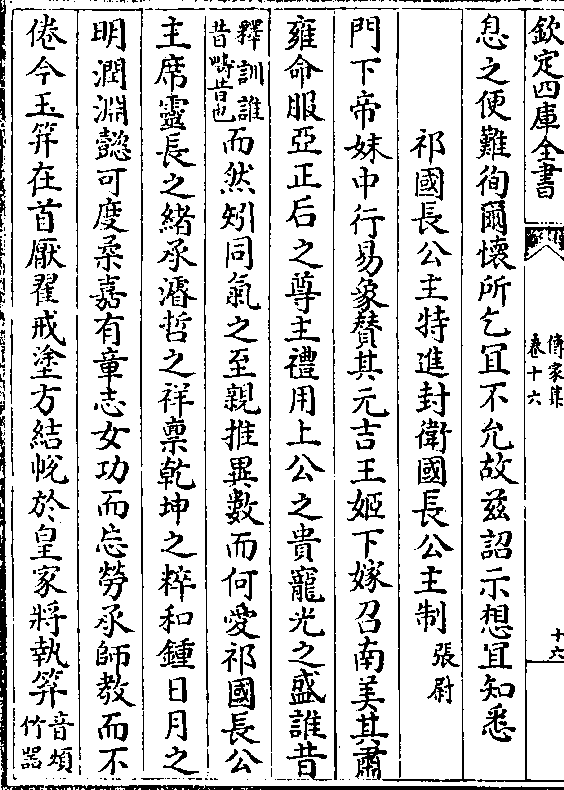 欽定四庫全書
傳家集
卷十六
十六
息之便難徇爾懷所乞宜不允故茲詔示想宜知悉
祁國長公主特進封衛國長公主制 張尉
門下帝妹中行易象賛其元吉王姬下嫁召南美其肅
雍命服亞正后之尊主禮用上公之貴寵光之盛誰昔
釋訓誰昔疇昔也 而然矧同氣之至親推異數而何愛祁國長公
主席靈長之緒承濬哲之祥禀乾坤之粹和鍾日月之
明潤淵懿可度柔嘉有章志女功而忘勞承師教而不
倦今玉筓在首厭翟戒塗方結帨於皇家將執筓 音煩竹器